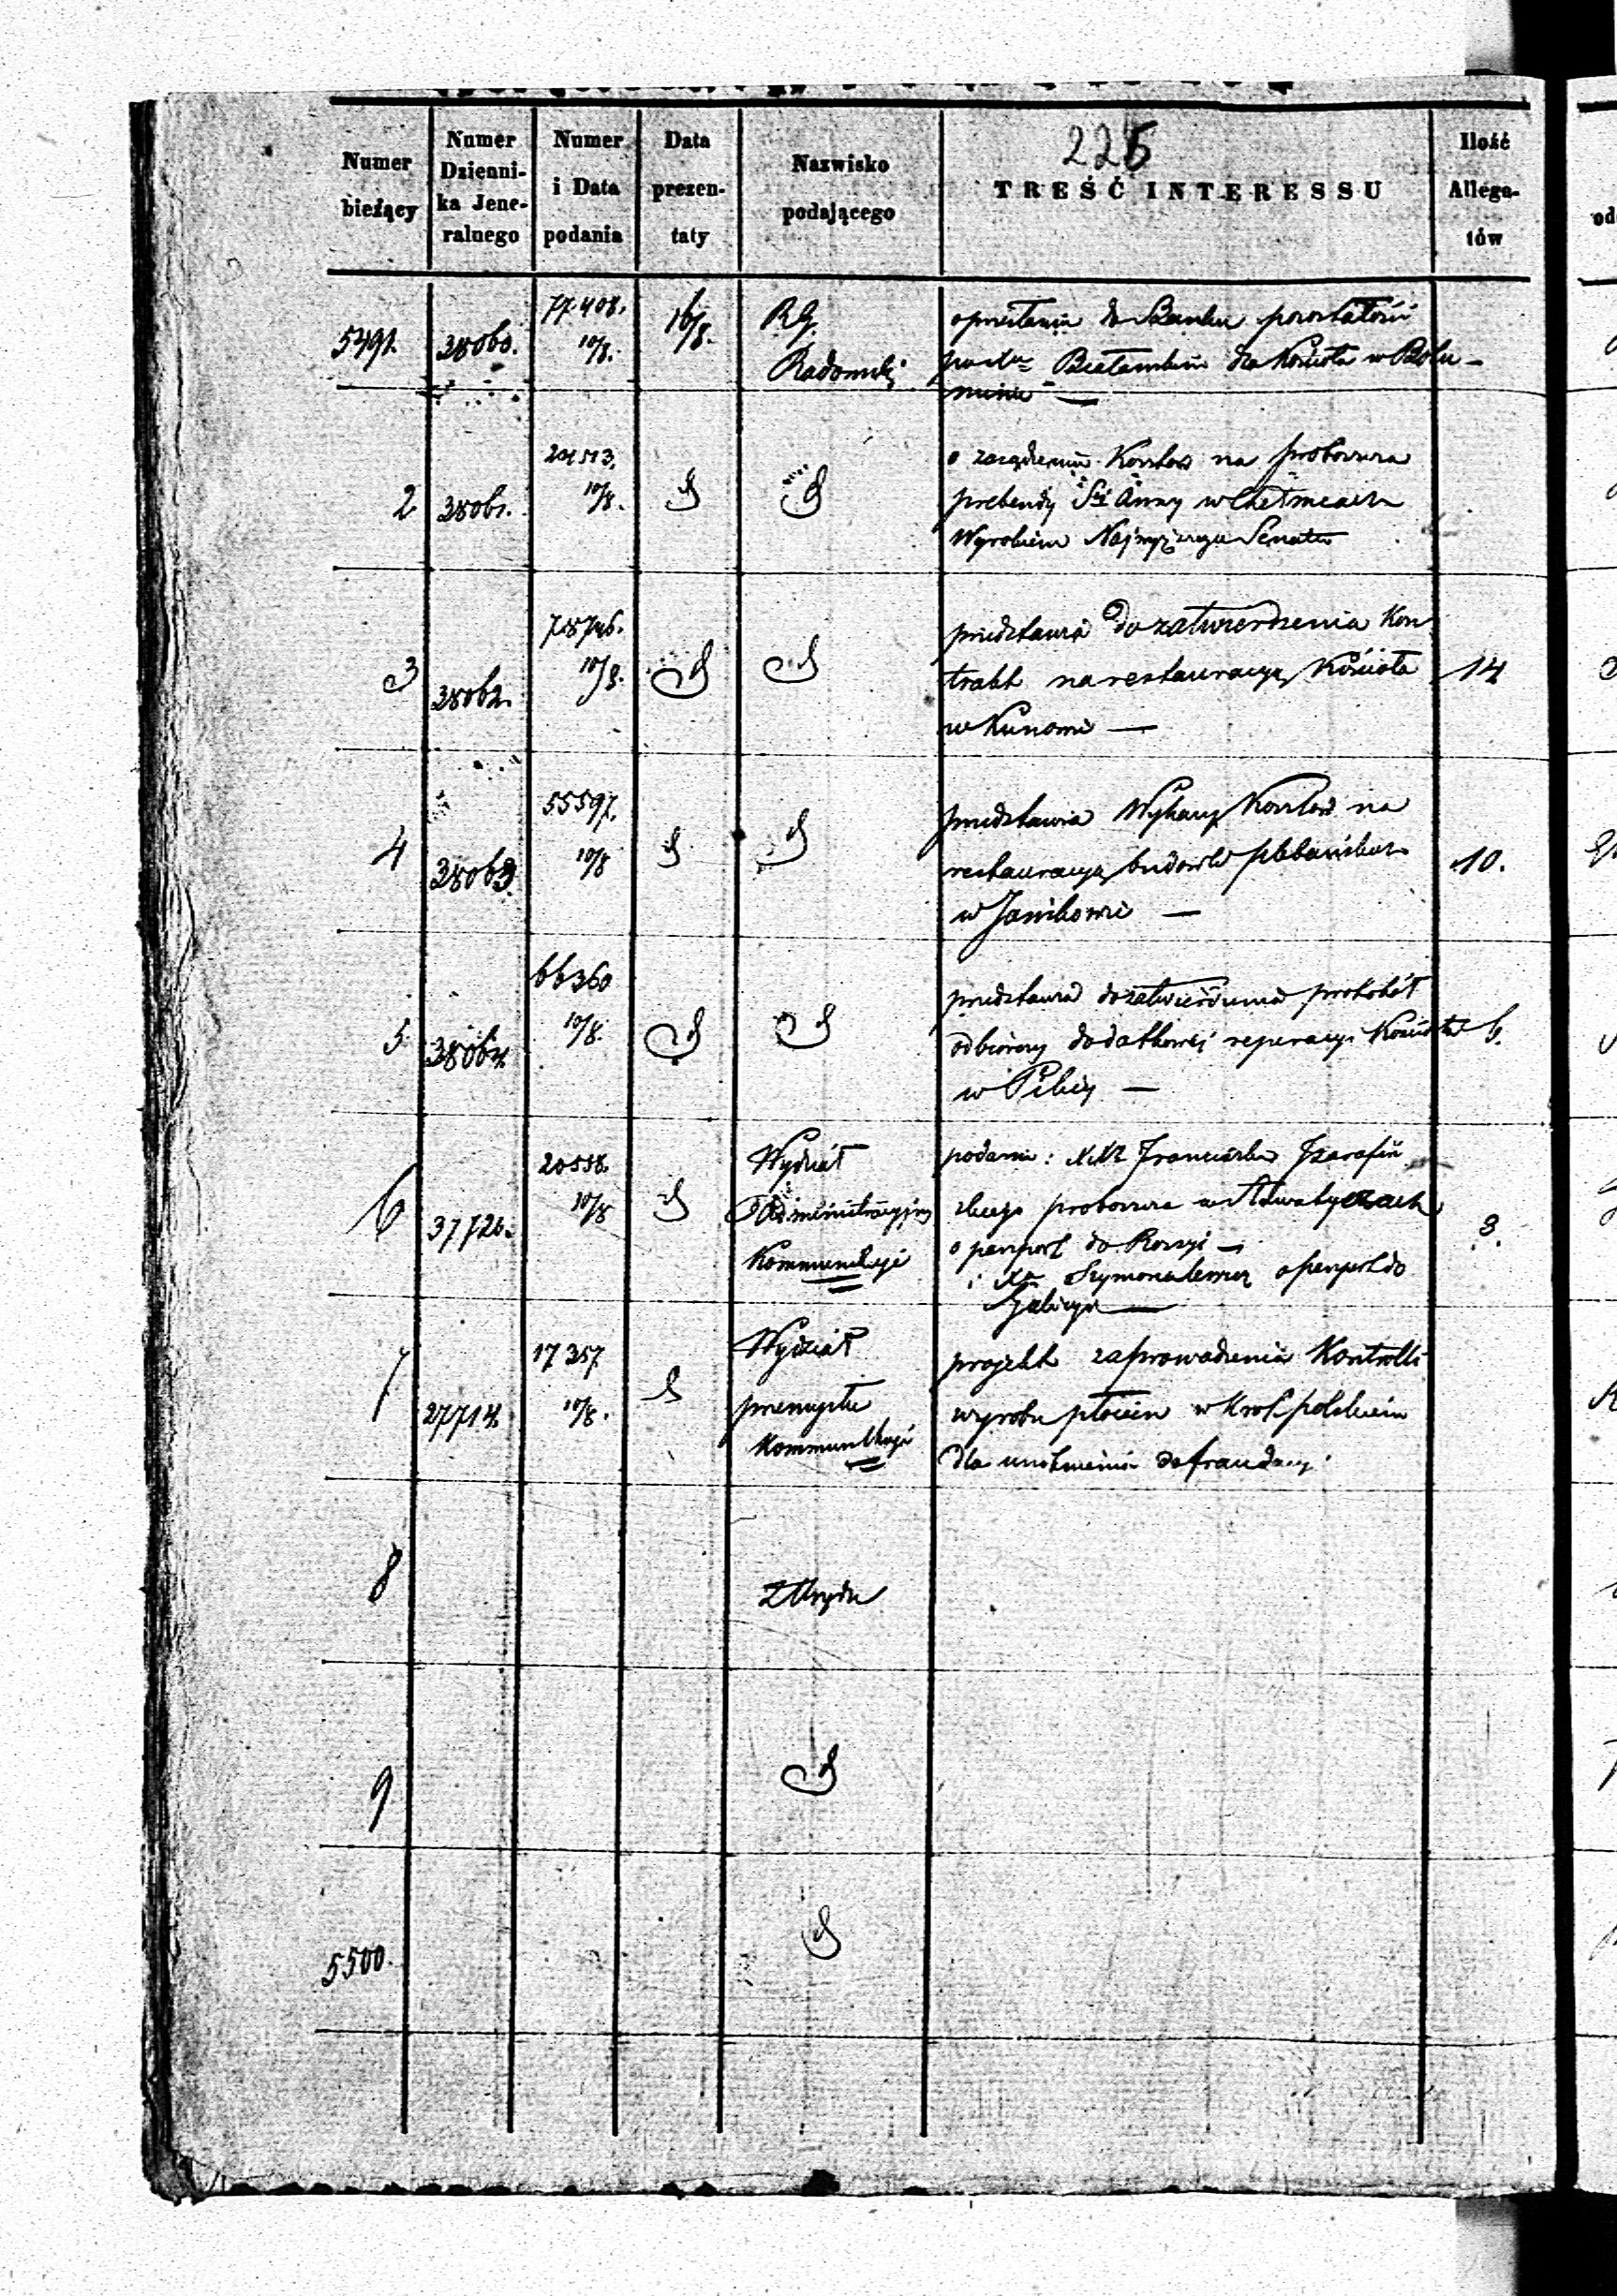 225
Numer bieżący
Numer Dzienni-ka Jene-ralnego
Numer i Data podania
Data prezen-taty
Nazwisko podającego
TREŚĆ INTERESSU
Ilość Allega-tów
5491. 38060. 77408. 10/8. 16/8. RG. Radomski
do Banku pozostałości
po Xdzu dla Kościoła w
2 38061. 24513. 10/8.
o zarządzenie Kosztów na proboszcza
prebendy Sej Anny w Chełmcach
Wyrokiem Najwyższego Senatu
3 38062. 78746. 10/8.
przedstawia do zatwierdzenia Kon
trakt na restauracyę Kościoła 14
w Kunowie —
4 38063 55597. 10/8
przedstawia Wykazy Kosztów na
restauracyę budowli plebańskich 10.
w Janikowie —
5 38064. 66360 10/8.
przedstawia do zatwierdzenia protokół
odbiorczy dodatkowej reperacyi Kościoła 6.
w Pilicy —
6 37726. 20558. 10/8 Wydział Administracyjny Kommunikuje
podanie: XXa Franciszka
skiego proboszcza w
o paszport do Rossyi — 3.
i Xa o paszport do
Galicyi —
7 27714. 17357. 10/8. Wydział przemysłu Kommunikuje
projekt zaprowadzenia Kontrolli
wyrobu płócien w Król. polskiem
dla defraudacyi.
8 z Urzędu
9
5500.